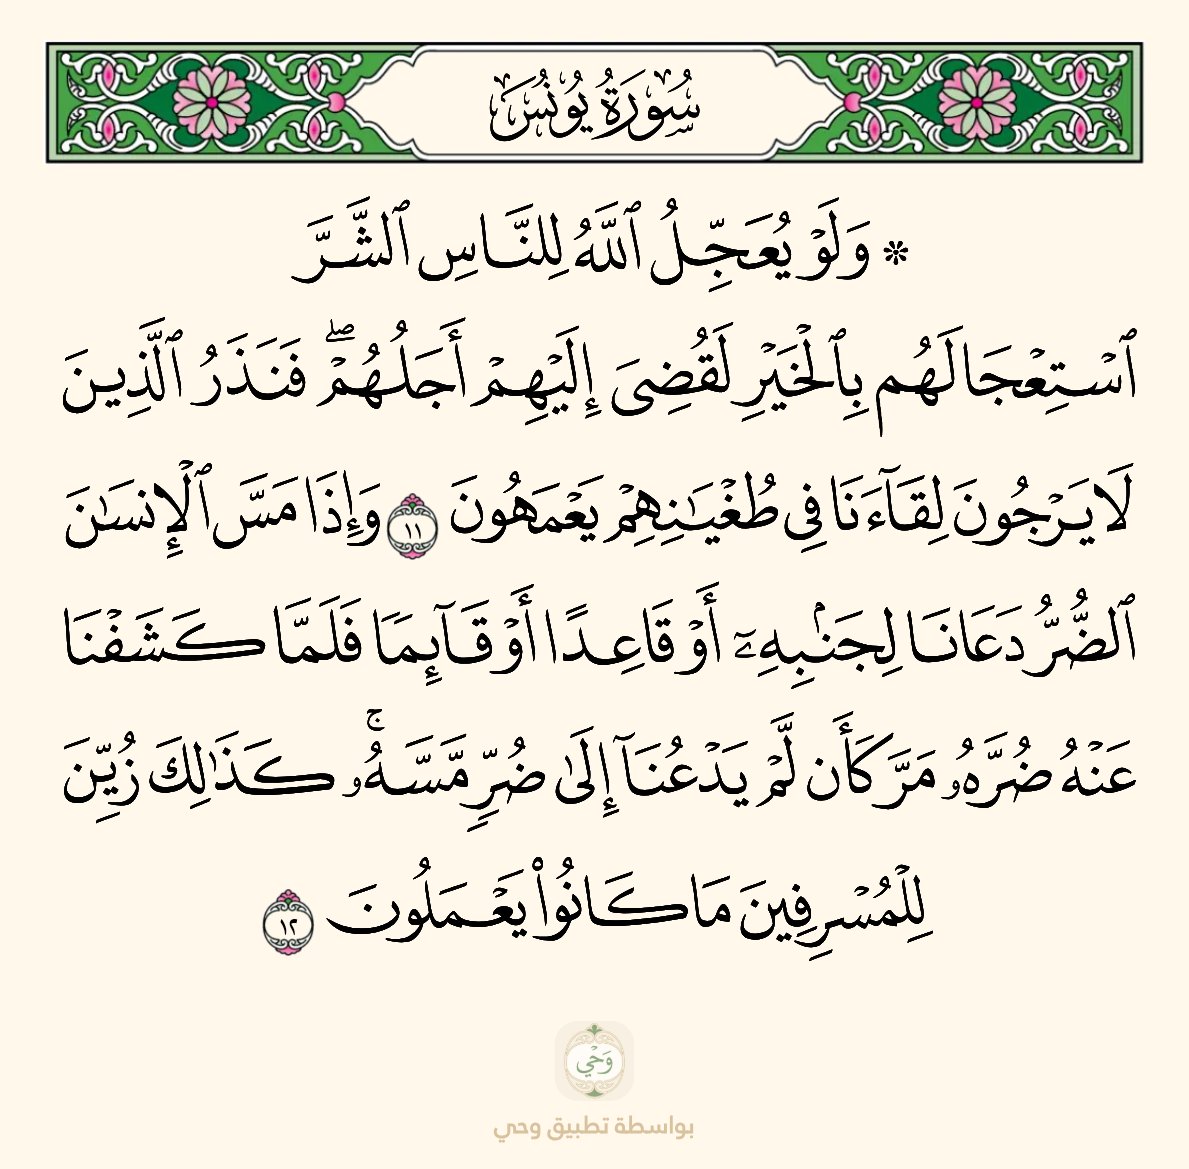 سُورَةُ يُونُسَ
۞ وَلَوْ يُعَجِّلُ ٱللَّهُ لِلنَّاسِ ٱلشَّرَّ
ٱسْتِعْجَالَهُم بِٱلْخَيْرِ لَقُضِىَ إِلَيْهِمْ أَجَلُهُمْۖ فَنَذَرُ ٱلَّذِينَ
لَا يَرْجُونَ لِقَآءَنَا فِى طُغْيَـٰنِهِمْ يَعْمَهُونَ ١١ وَإِذَا مَسَّ ٱلْإِنسَـٰنَ
ٱلضُّرُّ دَعَانَا لِجَنۢبِهِۦٓ أَوْ قَاعِدًا أَوْ قَآئِمًا فَلَمَّا كَشَفْنَا
عَنْهُ ضُرَّهُۥ مَرَّ كَأَن لَّمْ يَدْعُنَآ إِلَىٰ ضُرٍّ مَّسَّهُۥۚ كَذَٰلِكَ زُيِّنَ
لِلْمُسْرِفِينَ مَا كَانُوا۟ يَعْمَلُونَ ١٢
وَحْي
بواسطة تطبيق وحي